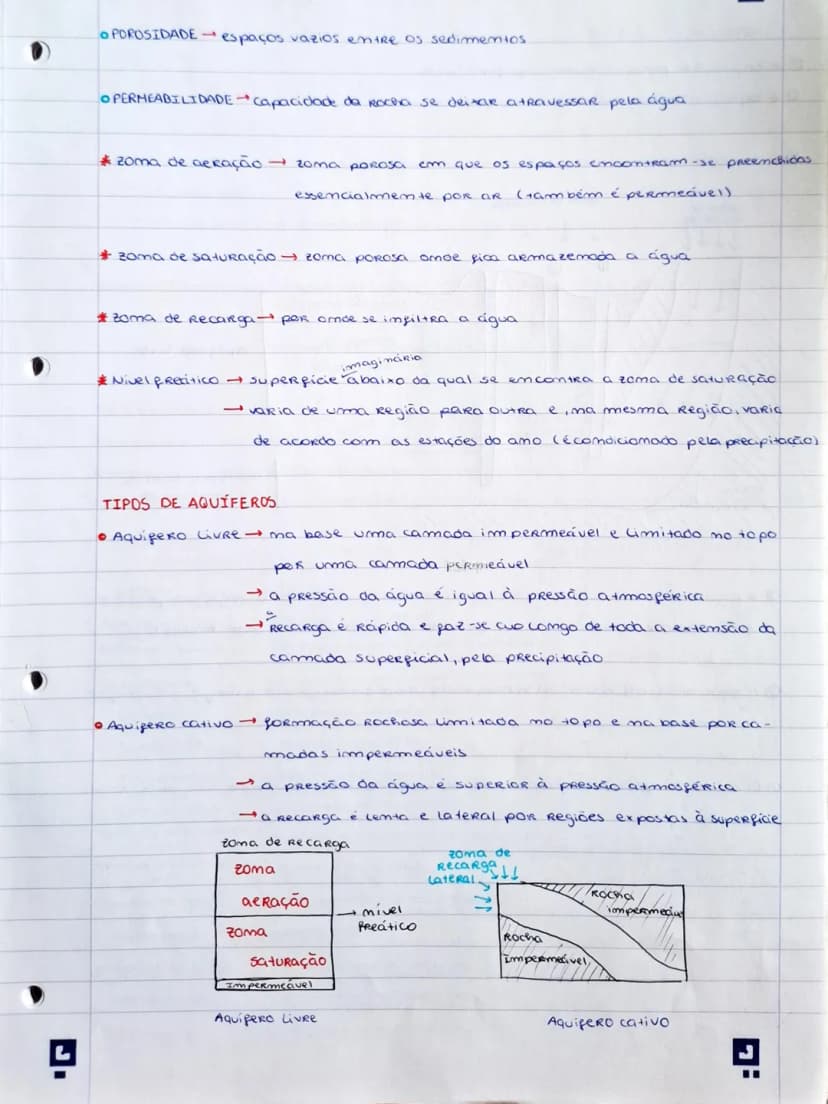 POROSIDADE → espaços vazios entre os sedimentos
PERMEABILIDADE → capacidade da rocha se deixar atravessar pela água
* zona de aeração → zona porosa em que os espaços encontram-se preenchidos
essencialmente por ar (também é permeável)
* zona de saturação → zona porosa onde fica armazenada a água
* zona de recarga → por onde se infiltra a água
imaginário
* Nível freático → superfície abaixo da qual se encontra a zona de saturação
→ varia de uma região para outra e, na mesma região, varia
de acordo com as estações do ano (é condicionado pela precipitação)
TIPOS DE AQUÍFEROS
Aquífero livre → na base uma camada impermeável e limitado no topo
por uma camada permeável
→ a pressão da água é igual à pressão atmosférica
→ a recarga é rápida e faz-se ao longo de toda a extensão da
camada superficial, pela precipitação
Aquífero cativo → formação rochosa limitada no topo e na base por ca-
madas impermeáveis
→ a pressão da água é superior à pressão atmosférica
→ a recarga é lenta e lateral por regiões expostas à superfície
zona de recarga
zona
aeração
→ nível
freático
zona
saturação
Impermeável
Aquífero livre
zona de
recarga
lateral
rocha
impermeável
rocha
impermeável
Aquífero cativo